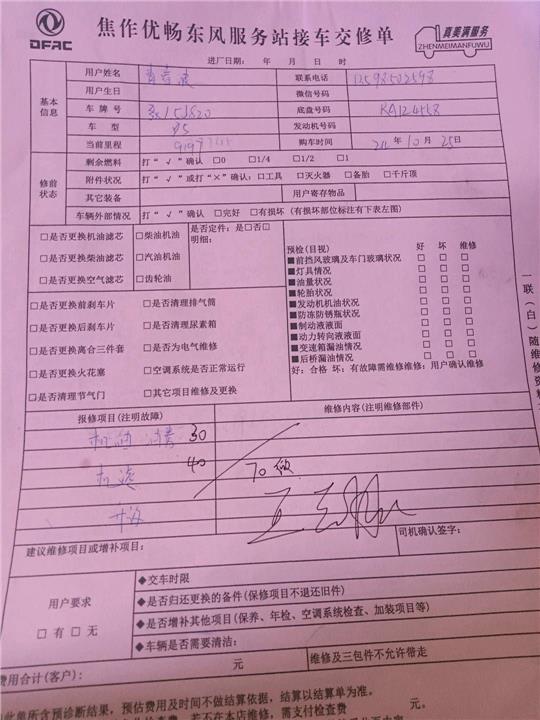 DFAC
焦作优畅东风服务站接车交修单
真美满服务
ZHENMEIMANFUWU
进厂日期： 年 月 日 时
基本信息
用户姓名
联系电话 13598502598
用户生日
微信号码
车牌号
底盘号码 RA124558
车 型
发动机号码
当前里程
购车时间 年 10 月 25 日
修前状态
剩余燃料 打“√”确认 □0 □1/4 □1/2 □1
附件状况 打“√”或打“×”确认：□工具 □灭火器 □备胎 □千斤顶
其它装备
用户寄存物品
车辆外部情况 打“√”确认 □完好 □有损坏（有损坏部位标注有下表左图）
□是否更换机油滤芯 □柴油机油
□是否更换柴油滤芯 □汽油机油
□是否更换空气滤芯 □齿轮油
是否定件：是□否□
明细：
□是否更换前刹车片 □是否清理排气筒
□是否更换后刹车片 □是否清理尿素箱
□是否更换离合三件套 □是否为电气维修
□是否更换火花塞 □空调系统是否正常运行
□是否清理节气门 □其它项目维修及更换
预检(目视) 好 坏 维修
■前挡风玻璃及车门玻璃状况 □ □ □
■灯具情况 □ □ □
■油量状况 □ □ □
■轮胎状况 □ □ □
■发动机机油状况 □ □ □
■防冻防锈瓶状况 □ □ □
■制动液液面 □ □ □
■动力转向液液面 □ □ □
■变速箱漏油情况 □ □ □
■后桥漏油情况 □ □ □
好：合格 坏：有故障需维修维修：用户确认维修
一联（白）随维修资料
报修项目(注明故障)
维修内容(注明维修部件)
30
机滤 40
70
建议维修项目或增补项目：
司机确认签字：
用户要求
□有 □无
◆交车时限
◆是否归还更换的备件(保修项目不退还旧件)
◆是否增补其他项目(保养、年检、空调系统检查、加装项目等)
◆车辆是否需要清洁：
费用合计(客户)： 元
维修及三包件不允许带走
此单所含预诊断结果，预估费用及时间不做结算依据，结算以结算单为准。
若不在本店维修，需支付检查费 元